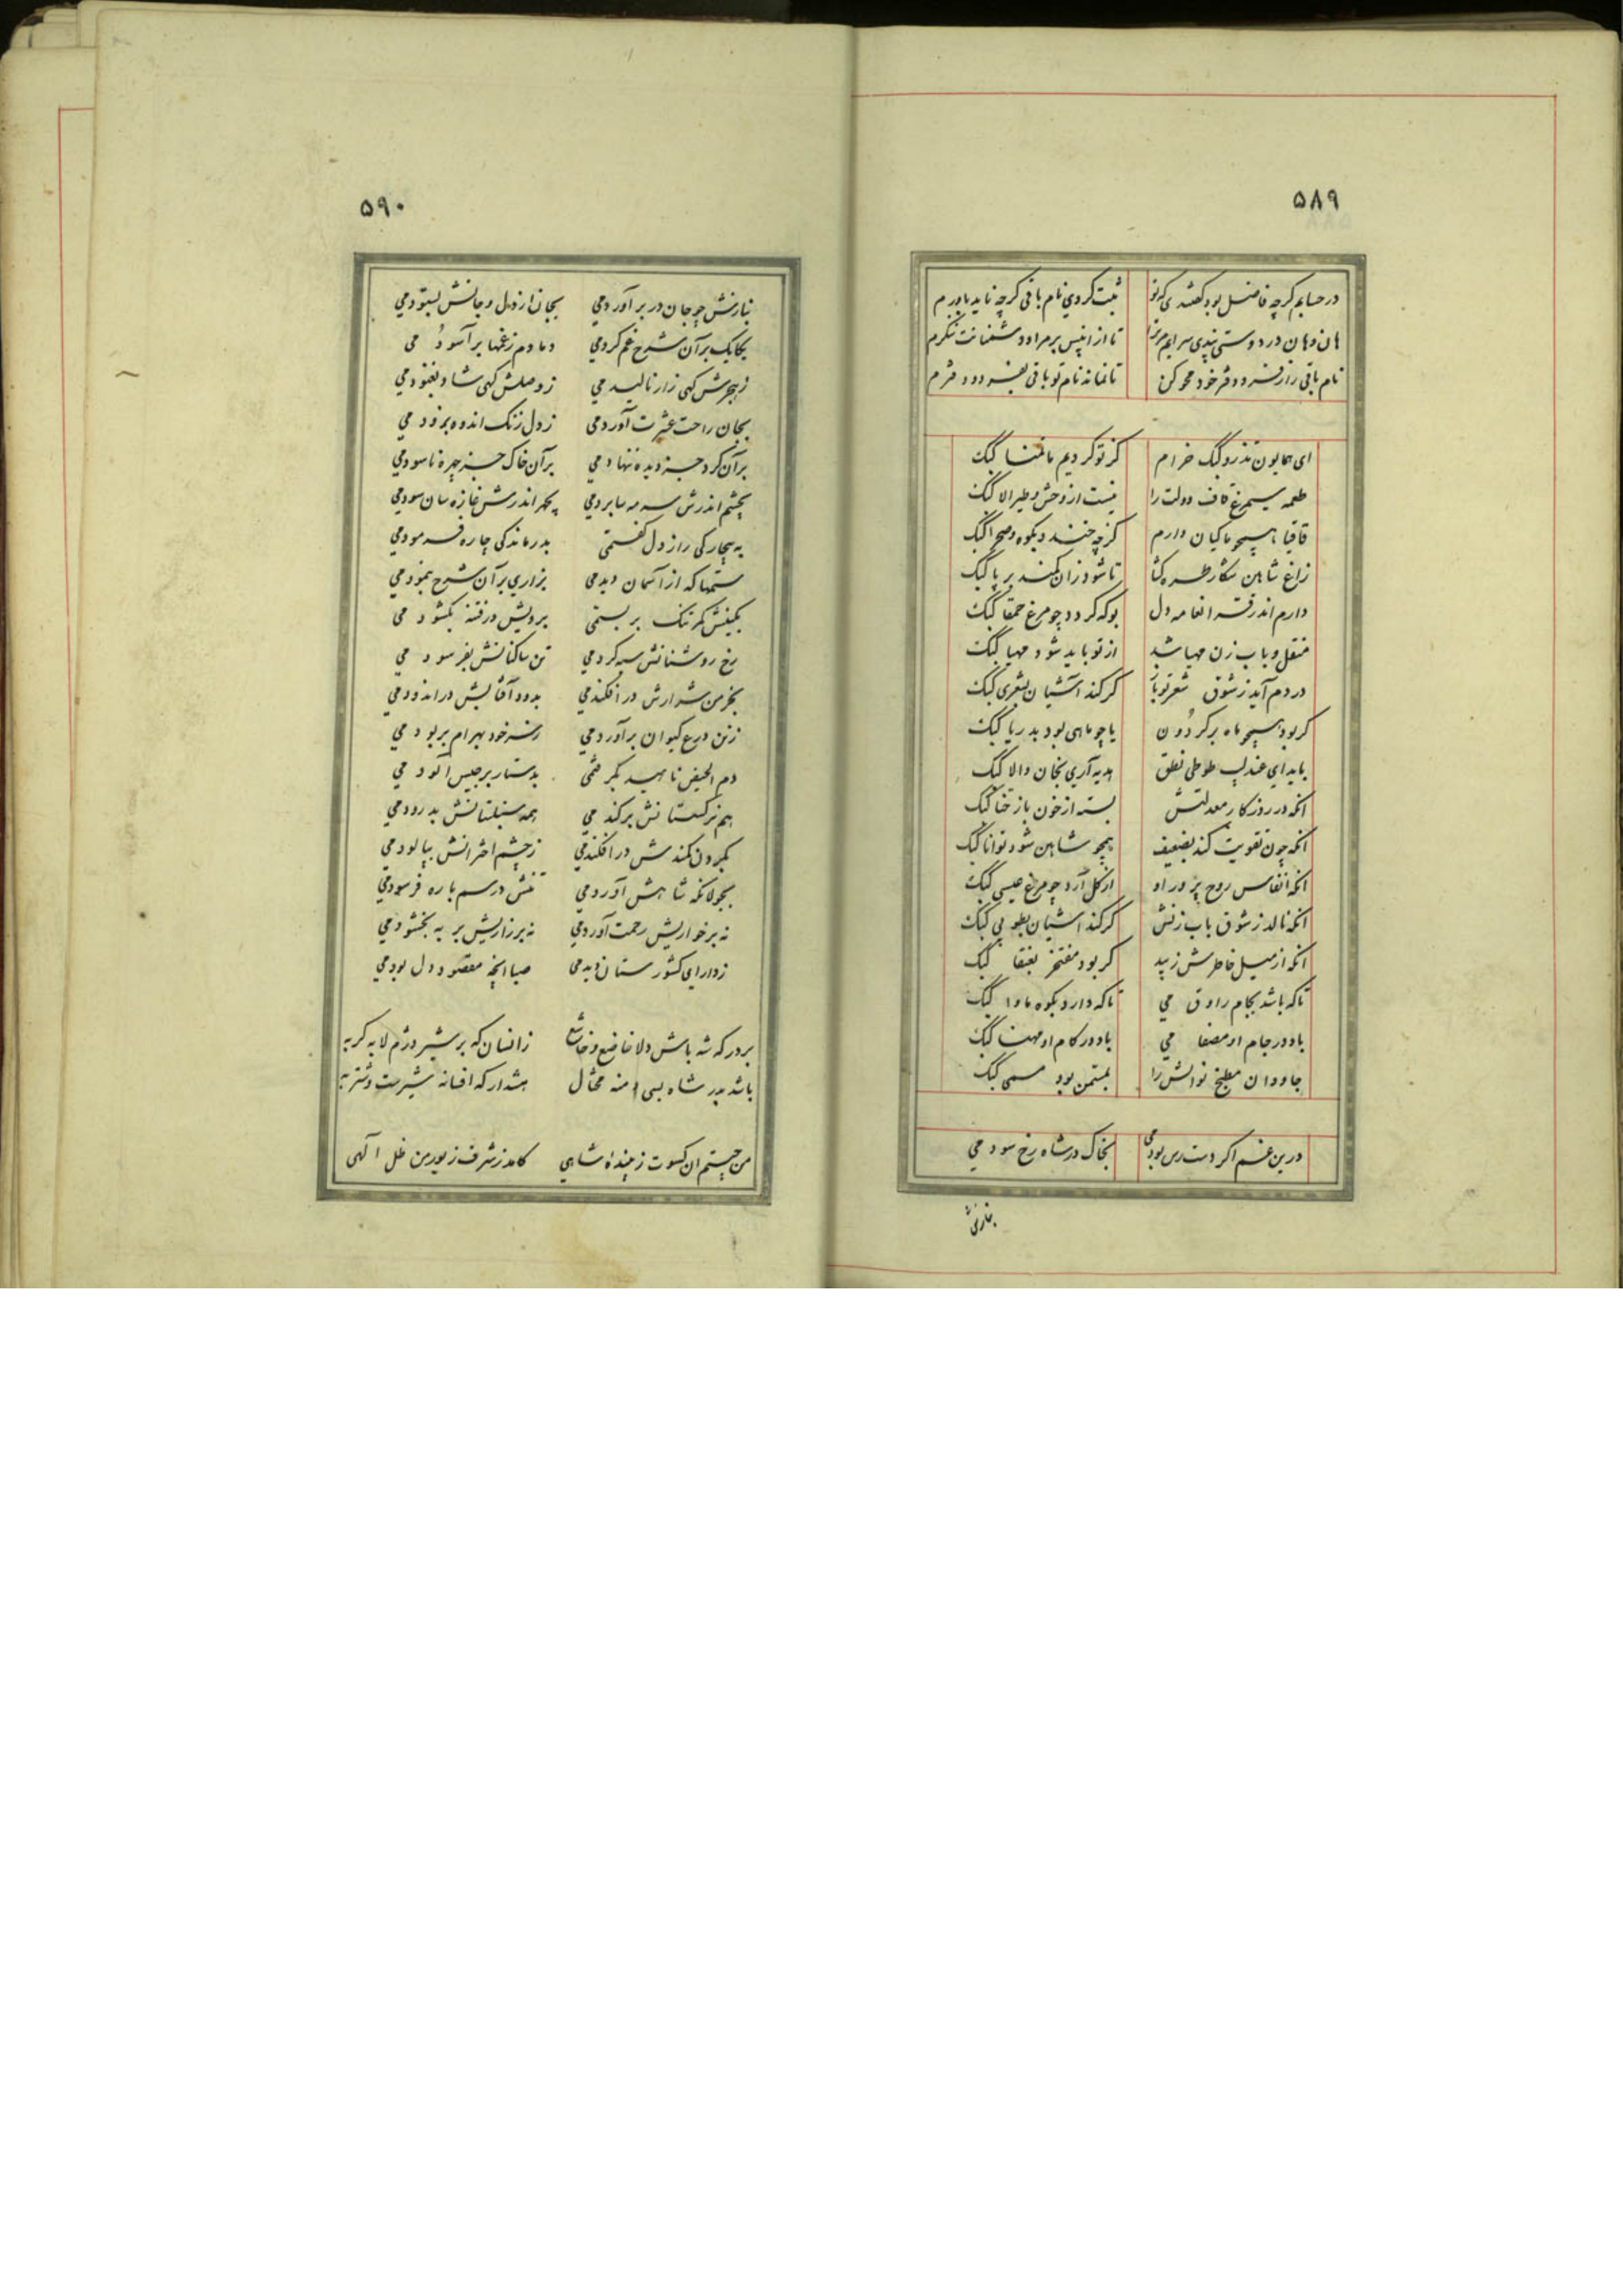 ۵۸۹
در حسابم کرچه فاضل بود کفتدی که تو ثبت کردی نام باقی کرچه ناید باورم
هان وهان در دوستی پندی سرایم مر ترا تا از این پس بر مراد دشمنانت ننکرم
نام باقی را ز فرد دفتر خود محو کن تا نماند نام تو باقی بفرد دفترم
ای همایون تذرو کبک خرام کز تو کردیم ما تمنا کبک
طعمه سیمرغ قاف دولت را نیست از وحش و طیر الا کبک
قافیا همچو ماکیان دارم کرچه خندد بکوه و صحرا کبک
زاغ شاهین شکار طره کشا تا شود زان کمند بر پا کبک
دارم اندر دل بو که کردد چو مرغ حمقا کبک
منقل و باب زن مهیا شد از تو باید شود مهیا کبک
در دم آید ز شوق شعر تو باز کر کند آشیان بشعری کبک
کر بود همچو ماه بر کردون یا چو ماهی بود بدریا کبک
باید ای عندلیب طوطی نطق هدیه آری بخان والا کبک
انکه در روزکار معدلتش بسته از خون باز حنا کبک
انکه چون تقویت کند بضعیف همچو شاهین شود توانا کبک
انکه انفاس روح پرور او از کل آرد چو مرغ عیسی کبک
انکه نالد ز شوق باب زنش کر کند اشیان بطوبی کبک
انکه از میل خاطرش زیبد کر بود مفتخر بعنقا کبک
تا که باشد بجام راوق می تا که دارد بکوه ماوا کبک
باد در جام او مصفا می باد در کام او مهنا کبک
جاودان مطبخ نوالش را بستمن بود مسمی کبک
درین غم اکر دست رس بودمی بخاک در شاه رخ سودمی
بنازش
۵۹۰
بنازش چو جان در بر آوردمی بجان از دل و جانش بستودمی
یکایک بر آن شرح غم کردمی دمادم ز غمها بر آسودمی
ز هجرش کهی زار نالیدمی ز وصلش کهی شاد بغنودمی
بجان راحت عشرت آوردمی ز دل زنک اندوه بزدودمی
بر آن کرد جز دیده ننهادمی بر آن خاک جز چهره ناسودمی
بچشم اندرش سرمه سا بردمی بچهر اندرش غازه سان سودمی
به بیچارکی راز دل کفتمی بدرماندکی چاره فرمودمی
ستمها که از آسمان دیدمی بزاری بر آن شرح بنمودمی
بکینش کمر تنک بر بستمی برویش در فتنه بکشودمی
رخ روشنانش سیه کردمی تن ساکنانش بفرسودمی
بخرمن شرارش در افکندمی بدود آفتابش در اندودمی
ز تن درع کیوان بر آوردمی ز سر خود بهرام بربودمی
دم الحیض ناهید بکرفتمی بدستار برجیس آلودمی
بهم نرکستانش برکندمی همه سنبلستانش بدرودمی
بکردن کمندش در افکندمی ز چشم اخترانش بپالودمی
بجولانکه شاهش آوردمی تنش در سم باره فرسودمی
نه بر خواریش رحمت آوردمی نه بر زاریش بر به بخشودمی
ز دارای کشور ستان دیدمی صبا انچه مقصود دل بودمی
بر درکه شه باش دلا خاضع و خاشع زانسان که بر شیر دژم لابه کربه
باشد بدر شاه بسی دمنه محتال هشدار که افسانه شیرست و شتربه
من چیستم ان کسوت زیبنده شاهی کامد ز شرف زیور من ظل الهی